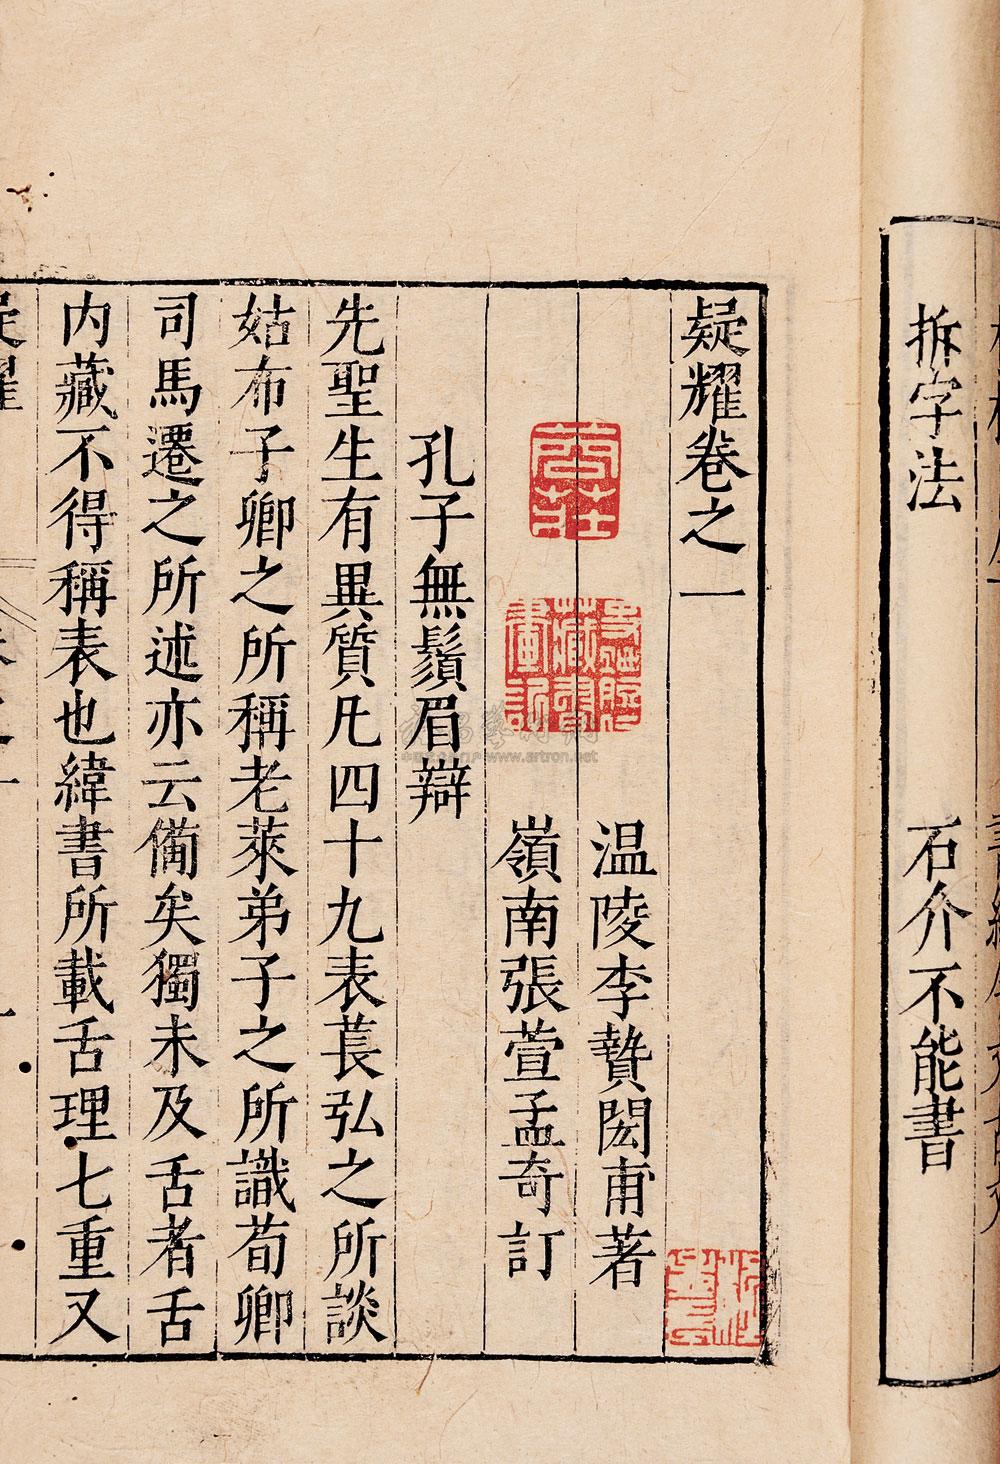 拆字法
石介不能書
疑耀卷之一
温陵李贄閎甫著
嶺南張萱孟奇訂
孔子無鬚眉辯
先聖生有異質凡四十九表萇弘之所談
姑布子卿之所稱老萊弟子之所識荀卿
司馬遷之所述亦云備矣獨未及舌者舌
内藏不得稱表也緯書所載舌理七重又
www.artron.net